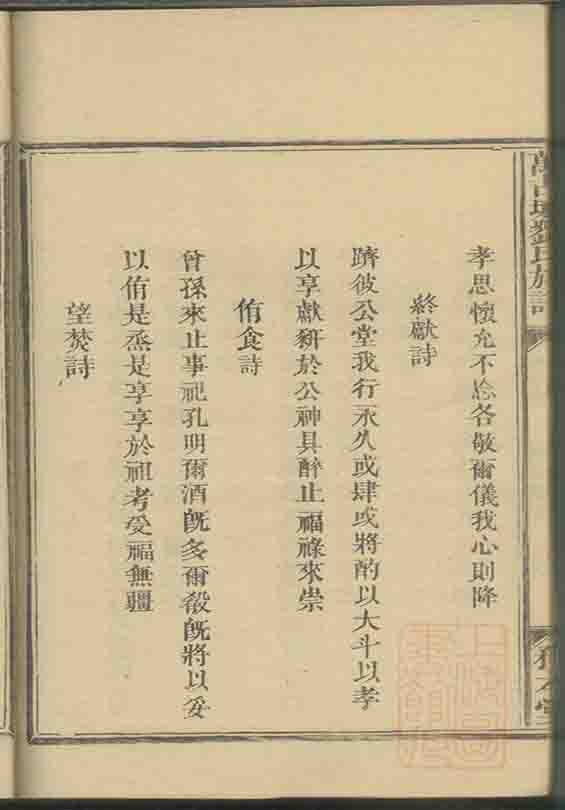 孝思懷允不忘各敬爾儀我心則降
終獻詩
躋彼公堂我行永久或肆或將酌以大斗以孝
以享獻豜於公神具醉止福祿來崇
侑食詩
曾孫來止事祀孔明爾酒既多爾殽既將以妥
以侑是烝是享享於祖考受福無疆
望焚詩
劉氏族譜